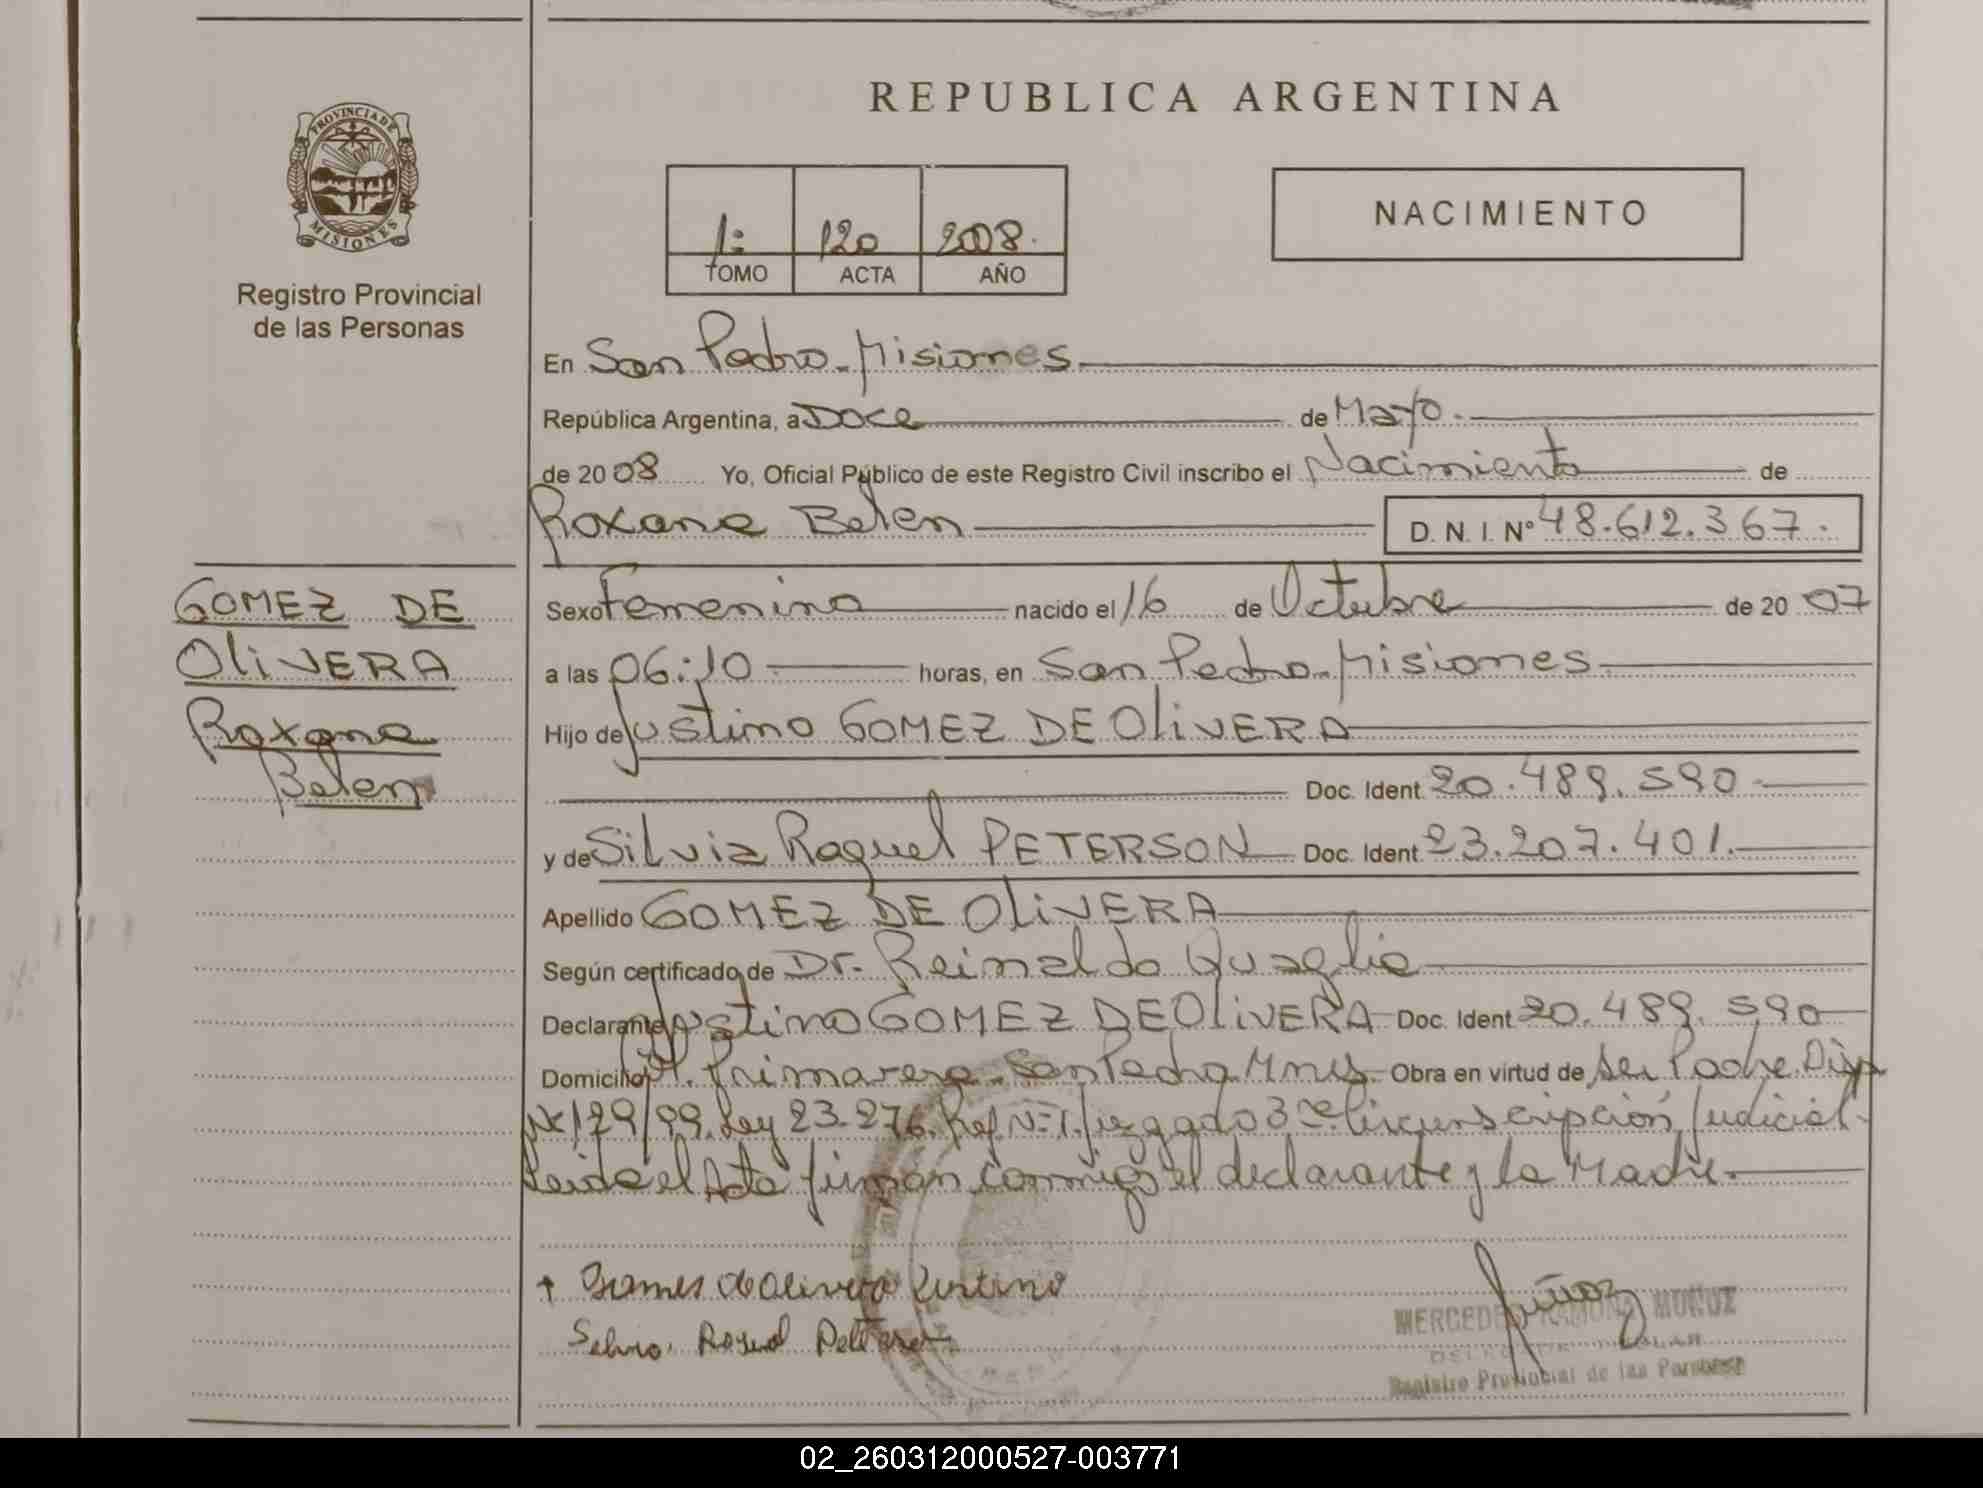 REPUBLICA ARGENTINA
PROVINCIA DE
MISIONES
Registro Provincial
de las Personas
1: 120 2008.
TOMO ACTA AÑO
NACIMIENTO
En San Pedro-Misiones
República Argentina, a Doce de Mayo.
de 20 08 Yo, Oficial Público de este Registro Civil inscribo el Nacimiento de
Roxana Belen D. N. I. N° 48.612.367.
GOMEZ DE
OLIVERA
Roxana
Belen
Sexo Femenino nacido el 16 de Octubre de 20 07
a las 06:10 horas, en San Pedro-Misiones
Hijo de Justino GOMEZ DE OLIVERA
Doc. Ident. 20.489.590
y de Silvia Raquel PETERSON Doc. Ident. 23.207.401.
Apellido GOMEZ DE OLIVERA
Según certificado de Dr. Reinaldo Quaglia
Declarante Justino GOMEZ DE OLIVERA Doc. Ident. 20.489.590
Domicilio Primavera-San Pedro Mnes. Obra en virtud de ser Padre. Disp
N° 129/99. Ley 23.276. Ref. N° 1. Juzgado 3ra. Circunscripción Judicial.
Leida el Acta firman conmigo el declarante y la Madre.
Gomes de Olivera Justino
Silvia Raquel Peterson
Muñoz
MERCEDES RAMONA MUÑOZ
Registro Provincial de las Personas
02_260312000527-003771